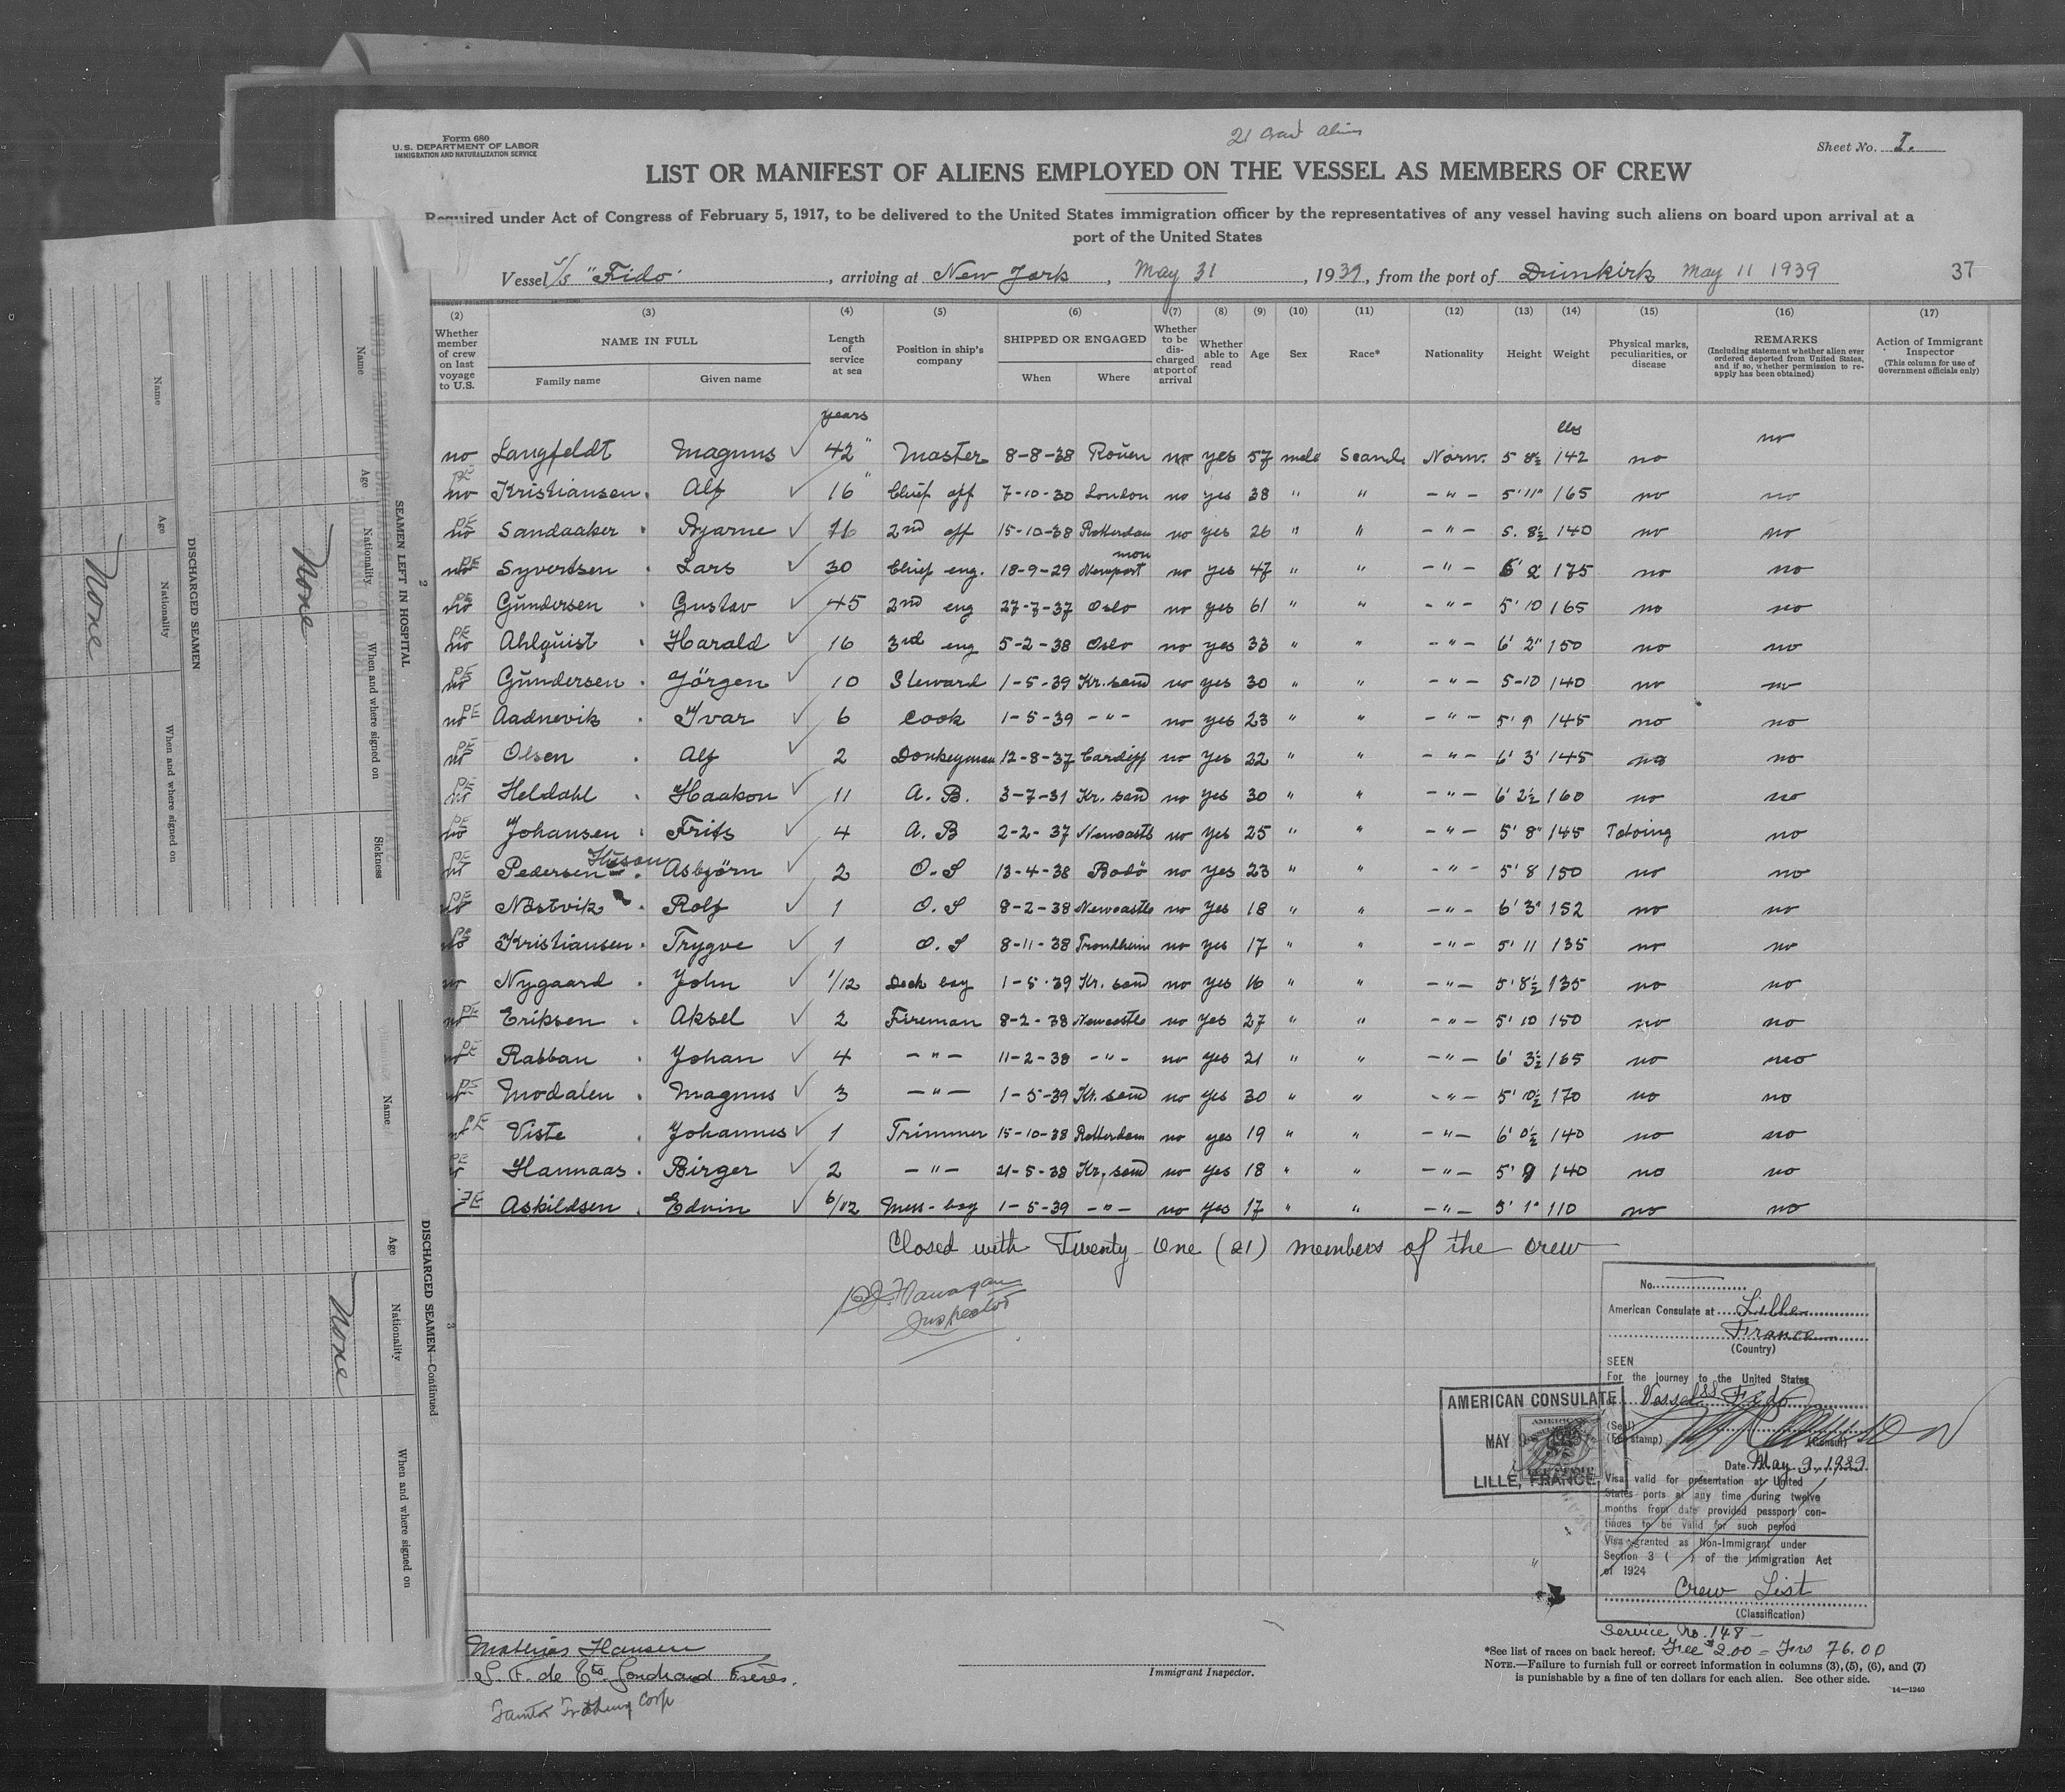 21 Crew Aliens
Form 680
U.S. DEPARTMENT OF LABOR
IMMIGRATION AND NATURALIZATION SERVICE
Sheet No. I.
LIST OR MANIFEST OF ALIENS EMPLOYED ON THE VESSEL AS MEMBERS OF CREW
Required under Act of Congress of February 5, 1917, to be delivered to the United States immigration officer by the representatives of any vessel having such aliens on board upon arrival at a
port of the United States
Vessel S/S "Fido", arriving at New York, May 31, 1939, from the port of Dunkirk May 11 1939 37
(2) Whether member of crew on last voyage to U.S.
(3) NAME IN FULL Family name Given name
(4) Length of service at sea
(5) Position in ship's company
(6) SHIPPED OR ENGAGED When Where
(7) Whether to be discharged at port of arrival
(8) Whether able to read
(9) Age
(10) Sex
(11) Race*
(12) Nationality
(13) Height
(14) Weight
(15) Physical marks, peculiarities, or disease
(16) REMARKS (Including statement whether alien ever ordered deported from United States, and if so, whether permission to re-apply has been obtained)
(17) Action of Immigrant Inspector (This column for use of Government officials only)
years lbs
no Langfeldt Magnus ✓ 42 " Master 8-8-38 Rouen no yes 57 male Scand. Norw. 5 8½ 142 no no
PE no Kristiansen Alf ✓ 16 " Chief off 7-10-30 London no yes 38 " " -"- 5'11" 165 no no
PE no Sandaaker Bjarne ✓ 16 2nd off 15-10-38 Rotterdam no yes 26 " " -"- 5. 8½ 140 no no
PE no Syvertsen Lars ✓ 30 Chief eng. 18-9-29 Newport mon no yes 47 " " -"- 6' 2 175 no no
PE no Gundersen Gustav ✓ 45 2nd eng 27-7-37 Oslo no yes 61 " " -"- 5' 10 165 no no
PE no Ahlquist Harald ✓ 16 3rd eng 5-2-38 Oslo no yes 33 " " -"- 6' 2" 150 no no
PE no Gundersen Jörgen ✓ 10 Steward 1-5-39 Kr. sand no yes 30 " " -"- 5-10 140 no no
PE no Aadnevik Ivar ✓ 6 Cook 1-5-39 -"- no yes 23 " " -"- 5' 9 145 no no
PE no Olsen Alf ✓ 2 Donkeyman 12-8-37 Cardiff no yes 22 " " -"- 6' 3' 145 no no
PE no Heldahl Haakon ✓ 11 A. B. 3-7-31 Kr. sand no yes 30 " " -"- 6' 2½ 160 no no
PE no Johansen Frits ✓ 4 A. B 2-2-37 Newcastle no yes 25 " " -"- 5' 8" 145 Tatoing no
PE no Pedersen Asbjörn ✓ 2 O.S 13-4-38 Bodö no yes 23 " " -"- 5' 8 150 no no
PE no Nöstvik Rolf ✓ 1 O.S 8-2-38 Newcastle no yes 18 " " -"- 6' 3" 152 no no
PE no Kristiansen Trygve ✓ 1 O.S 8-11-38 Trondheim no yes 17 " " -"- 5' 11 135 no no
no Nygaard John ✓ 1/12 Deck boy 1-5-39 Kr. sand no yes 16 " " -"- 5' 8½ 135 no no
PE no Eriksen Aksel ✓ 2 Fireman 8-2-38 Newcastle no yes 27 " " -"- 5' 10 150 no no
PE no Rabban Johan ✓ 4 -"- 11-2-38 -"- no yes 21 " " -"- 6' 3½ 165 no no
PE Modalen Magnus ✓ 3 -"- 1-5-39 Kr. sand no yes 30 " " -"- 5' 10½ 170 no no
PE Viste Johannes ✓ 1 Trimmer 15-10-38 Rotterdam no yes 19 " " -"- 6' 0½ 140 no no
PE Hannaas Birger ✓ 2 -"- 21-5-38 Kr. sand no yes 18 " " -"- 5' 9 140 no no
PE Askildsen Edvin ✓ 6/12 Mess-boy 1-5-39 -"- no yes 17 " " -"- 5' 1" 110 no no
Closed with Twenty One (21) members of the crew
Flanagan
Inspector
No.
American Consulate at Lille
France
(Country)
SEEN
For the journey to the United States
Vessel SS Fido
(Seal)
(Fee stamp)
(Consul)
Date May 9, 1939.
Visa valid for presentation at United
States ports at any time during twelve
months from date provided passport con-
tinues to be valid for such period
Visa granted as Non-Immigrant under
Section 3 ( ) of the Immigration Act
of 1924
Crew List
(Classification)
AMERICAN CONSULATE
MAY 9 1939
LILLE, FRANCE
Service No. 148
Fee $2.00 = Frs 76.00
Mathias Hansen
S. F. de Ets Gondrand Frères.
Immigrant Inspector.
*See list of races on back hereof.
NOTE.—Failure to furnish full or correct information in columns (3), (5), (6), and (7)
is punishable by a fine of ten dollars for each alien. See other side.
14—1240
SEAMEN LEFT IN HOSPITAL
2
Name Age Nationality When and where signed on Sickness
None
DISCHARGED SEAMEN
Name Age Nationality When and where signed on
None
DISCHARGED SEAMEN—Continued
3
Name Age Nationality When and where signed on
None